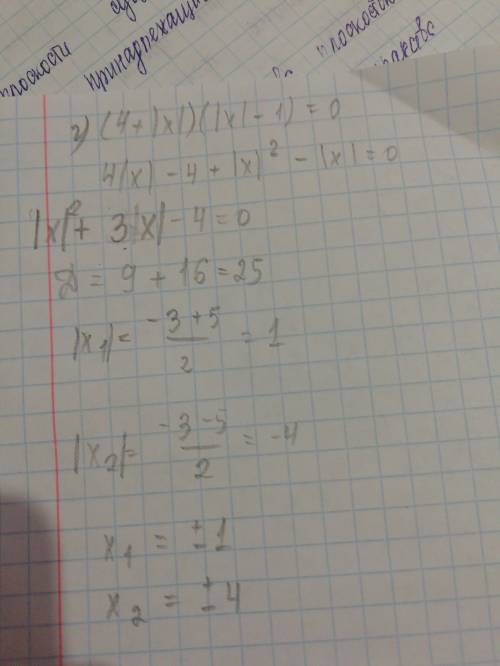 плоскости
принадлежащи
плоскост
г) (4+|x|)(|x|-1)=0
4|x|-4+|x|²-|x|=0
|x|²+3|x|-4=0
D=9+16=25
|x₁|=(-3+5)/2=1
|x₂|=(-3-5)/2=-4
x₁=±1
x₂=±4